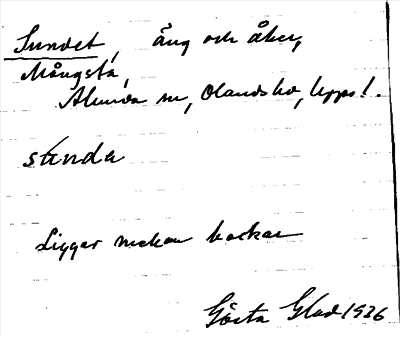 Sundet, äng och åker,
Mångsta,
Alunda sn, Olands hd, Upps l.
sunda
Ligger mellan backar
Gösta Glad 1926